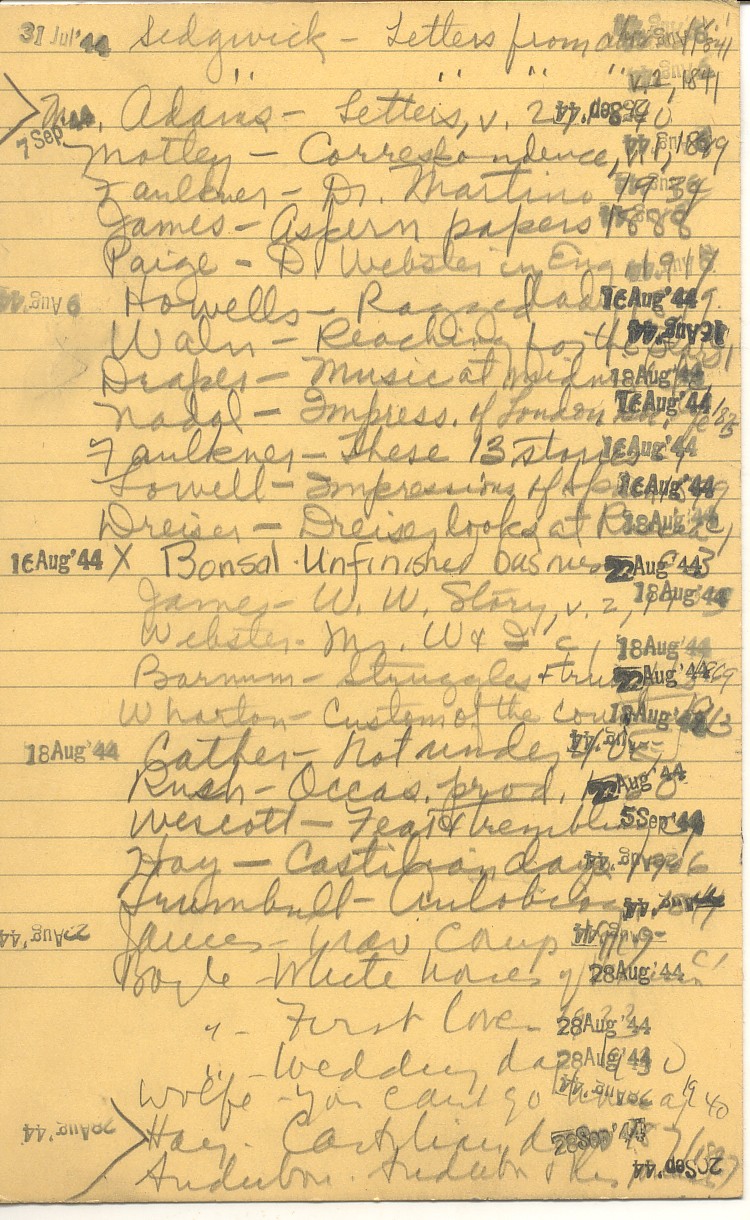 31 Jul '44 Sedgwick - Letters from 1841
" " " " v. 2, 1841
Mrs. Adams - Letters, v. 2, 25 Sep '44
7 Sep Motley - Correspondence, v. 1, 1889
Faulkner - Dr. Martino 1934
James - Aspern papers 1888
Paige - D. Webster in Eng
9 Aug '44 Howells - Ragged lady 16 Aug '44
Waln - Reaching for the stars 16 Aug '44
Draper - Music at midn 18 Aug '44
Nadal - Impress. of London 16 Aug '44 1875
Faulkner - These 13 stories 16 Aug '44
Lowell - Impressions of Spain 16 Aug '44
Dreiser - Dreiser looks at Russia 18 Aug '44
16 Aug '44 X Bonsal - Unfinished business 22 Aug '44
James - W. W. Story, v. 2, 18 Aug '44
Webster - Mr. W & I 18 Aug '44
Barnum - Struggles + triumphs 22 Aug '44 1869
Wharton - Custom of the country 18 Aug '44
18 Aug '44 Cather - Not under 40
Rush - Occas. prod. 22 Aug '44
Wescott - Fear & trembling 5 Sep '44
Hay - Castilian days 1906
Trumbull - Autobiog
22 Aug '44 James - Trav. comp
Boyle - White horses of Vienna 28 Aug '44
" - First love 28 Aug '44
" - Wedding day 1930 28 Aug '44
Wolfe - You can't go home ag 1940 28 Aug '44
28 Aug '44 Hay - Castilian days 28 Sep '44
Audubon - Audubon & his 20 Sep '44